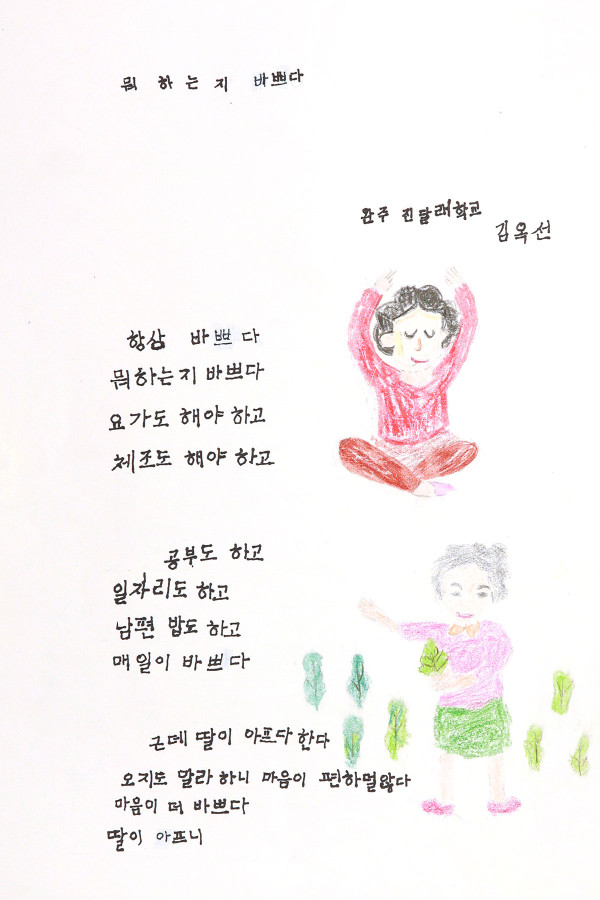 뭐 하는지 바쁘다
완주 진달래학교
김옥선
항상 바쁘다
뭐하는지 바쁘다
요가도 해야 하고
체조도 해야 하고
공부도 하고
일자리도 하고
남편 밥도 하고
매일이 바쁘다
근데 딸이 아프다 한다
오지도 말라 하니 마음이 편하덜않다
마음이 더 바쁘다
딸이 아프니